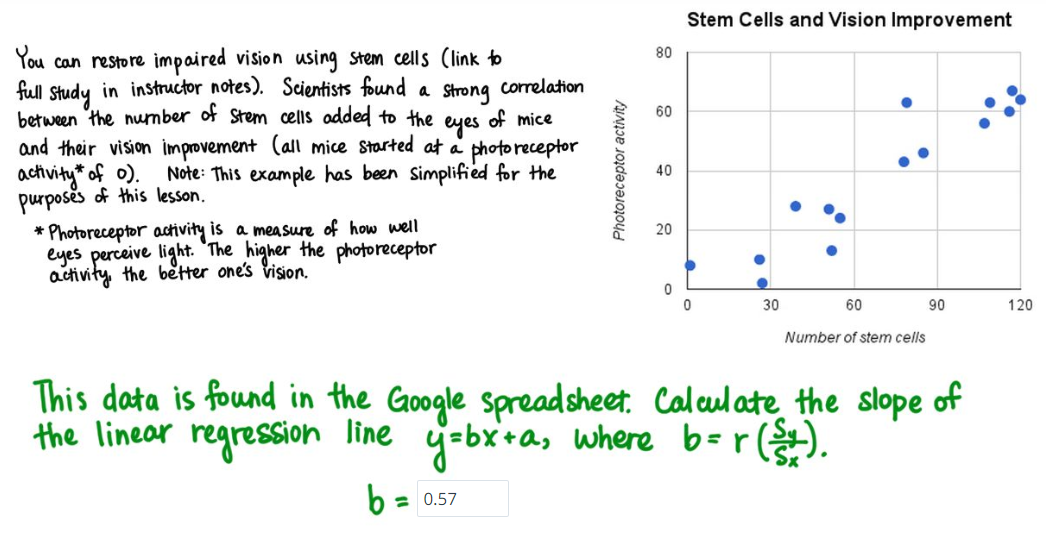 Stem Cells and Vision Improvement
You can restore impaired vision using stem cells (link to
full study in instructor notes). Scientists found a strong correlation
between the number of stem cells added to the eyes of mice
and their vision improvement (all mice started at a photoreceptor
activity* of 0). Note: This example has been simplified for the
purposes of this lesson.
* Photoreceptor activity is a measure of how well
eyes perceive light. The higher the photoreceptor
activity, the better one's vision.
80
60
40
20
0
Photoreceptor activity
0 30 60 90 120
Number of stem cells
This data is found in the Google spreadsheet. Calculate the slope of
the linear regression line y=bx+a, where b= r(Sy/Sx).
b = 0.57